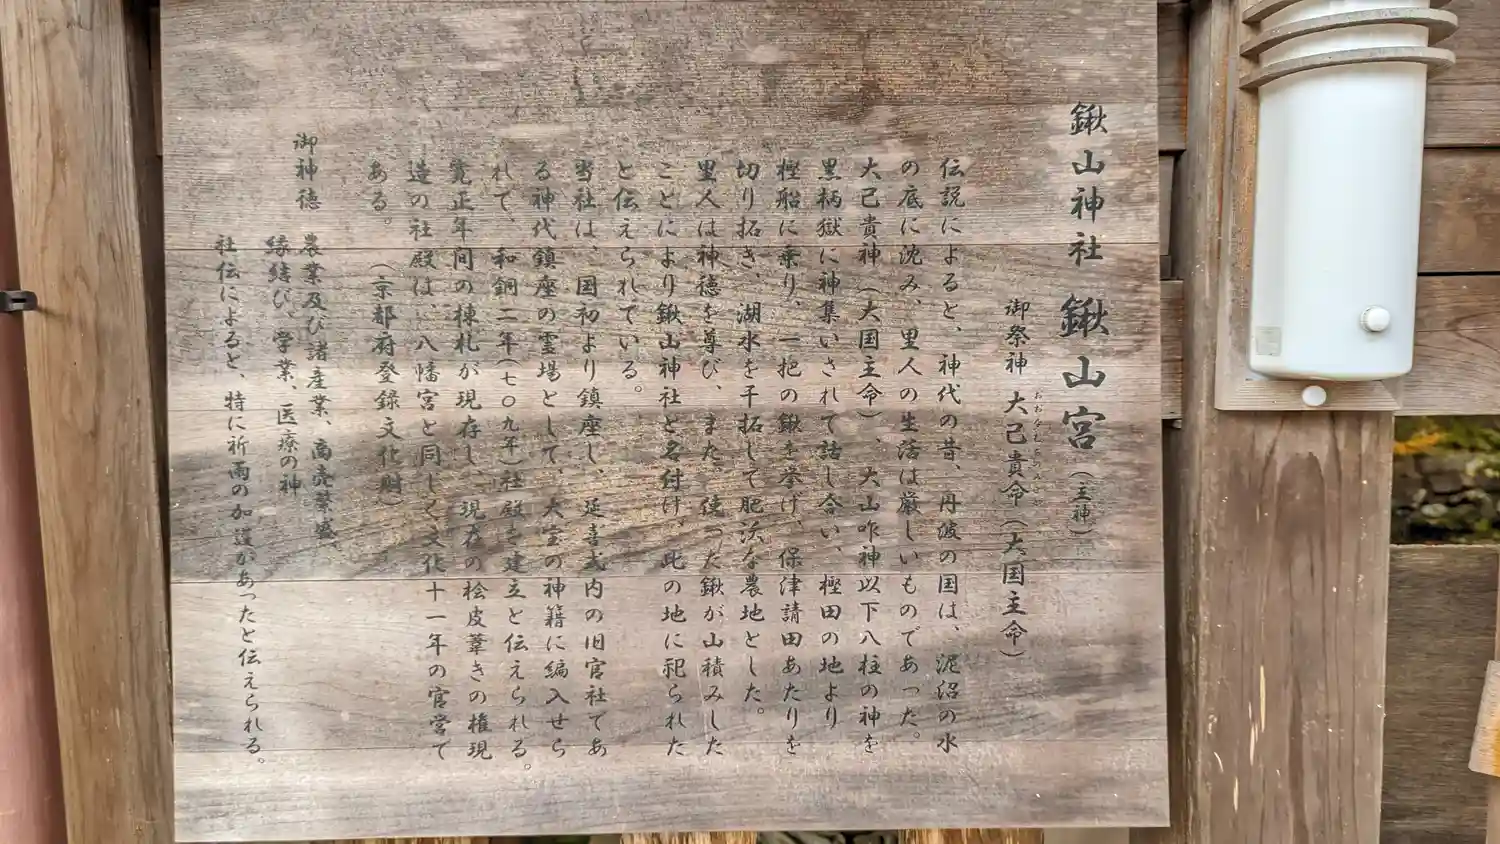 鍬山神社 鍬山宮(主神)
御祭神 大己貴命(大国主命)
おおなむちのみこと
伝説によると、神代の昔、丹波の国は、泥沼の水
の底に沈み、里人の生活は厳しいものであった。
大己貴神(大国主命)、大山咋神以下八柱の神を
黒柄獄に神集いされて話し合い、樫田の地より
樫船に乗り、一把の鍬を挙げ、保津請田あたりを
切り拓き、湖水を干拓して肥沃な農地とした。
里人は神徳を尊び、また、使った鍬が山積みした
ことにより鍬山神社と名付け、此の地に祀られた
と伝えられている。
当社は、国初より鎮座し、延喜式内の旧官社であ
る神代鎮座の霊場として、大宝の神籍に編入せら
れて、和銅二年(七〇九年)社殿を建立と伝えられる。
寛正年間の棟札が現存し、現存の桧皮葺きの権現
造の社殿は、八幡宮と同じく文化十一年の官営で
ある。(京都府登録文化財)
御神徳 農業及び諸産業、商売繁盛、
縁結び、学業、医療の神
社伝によると、特に祈雨の加護があったと伝えられる。